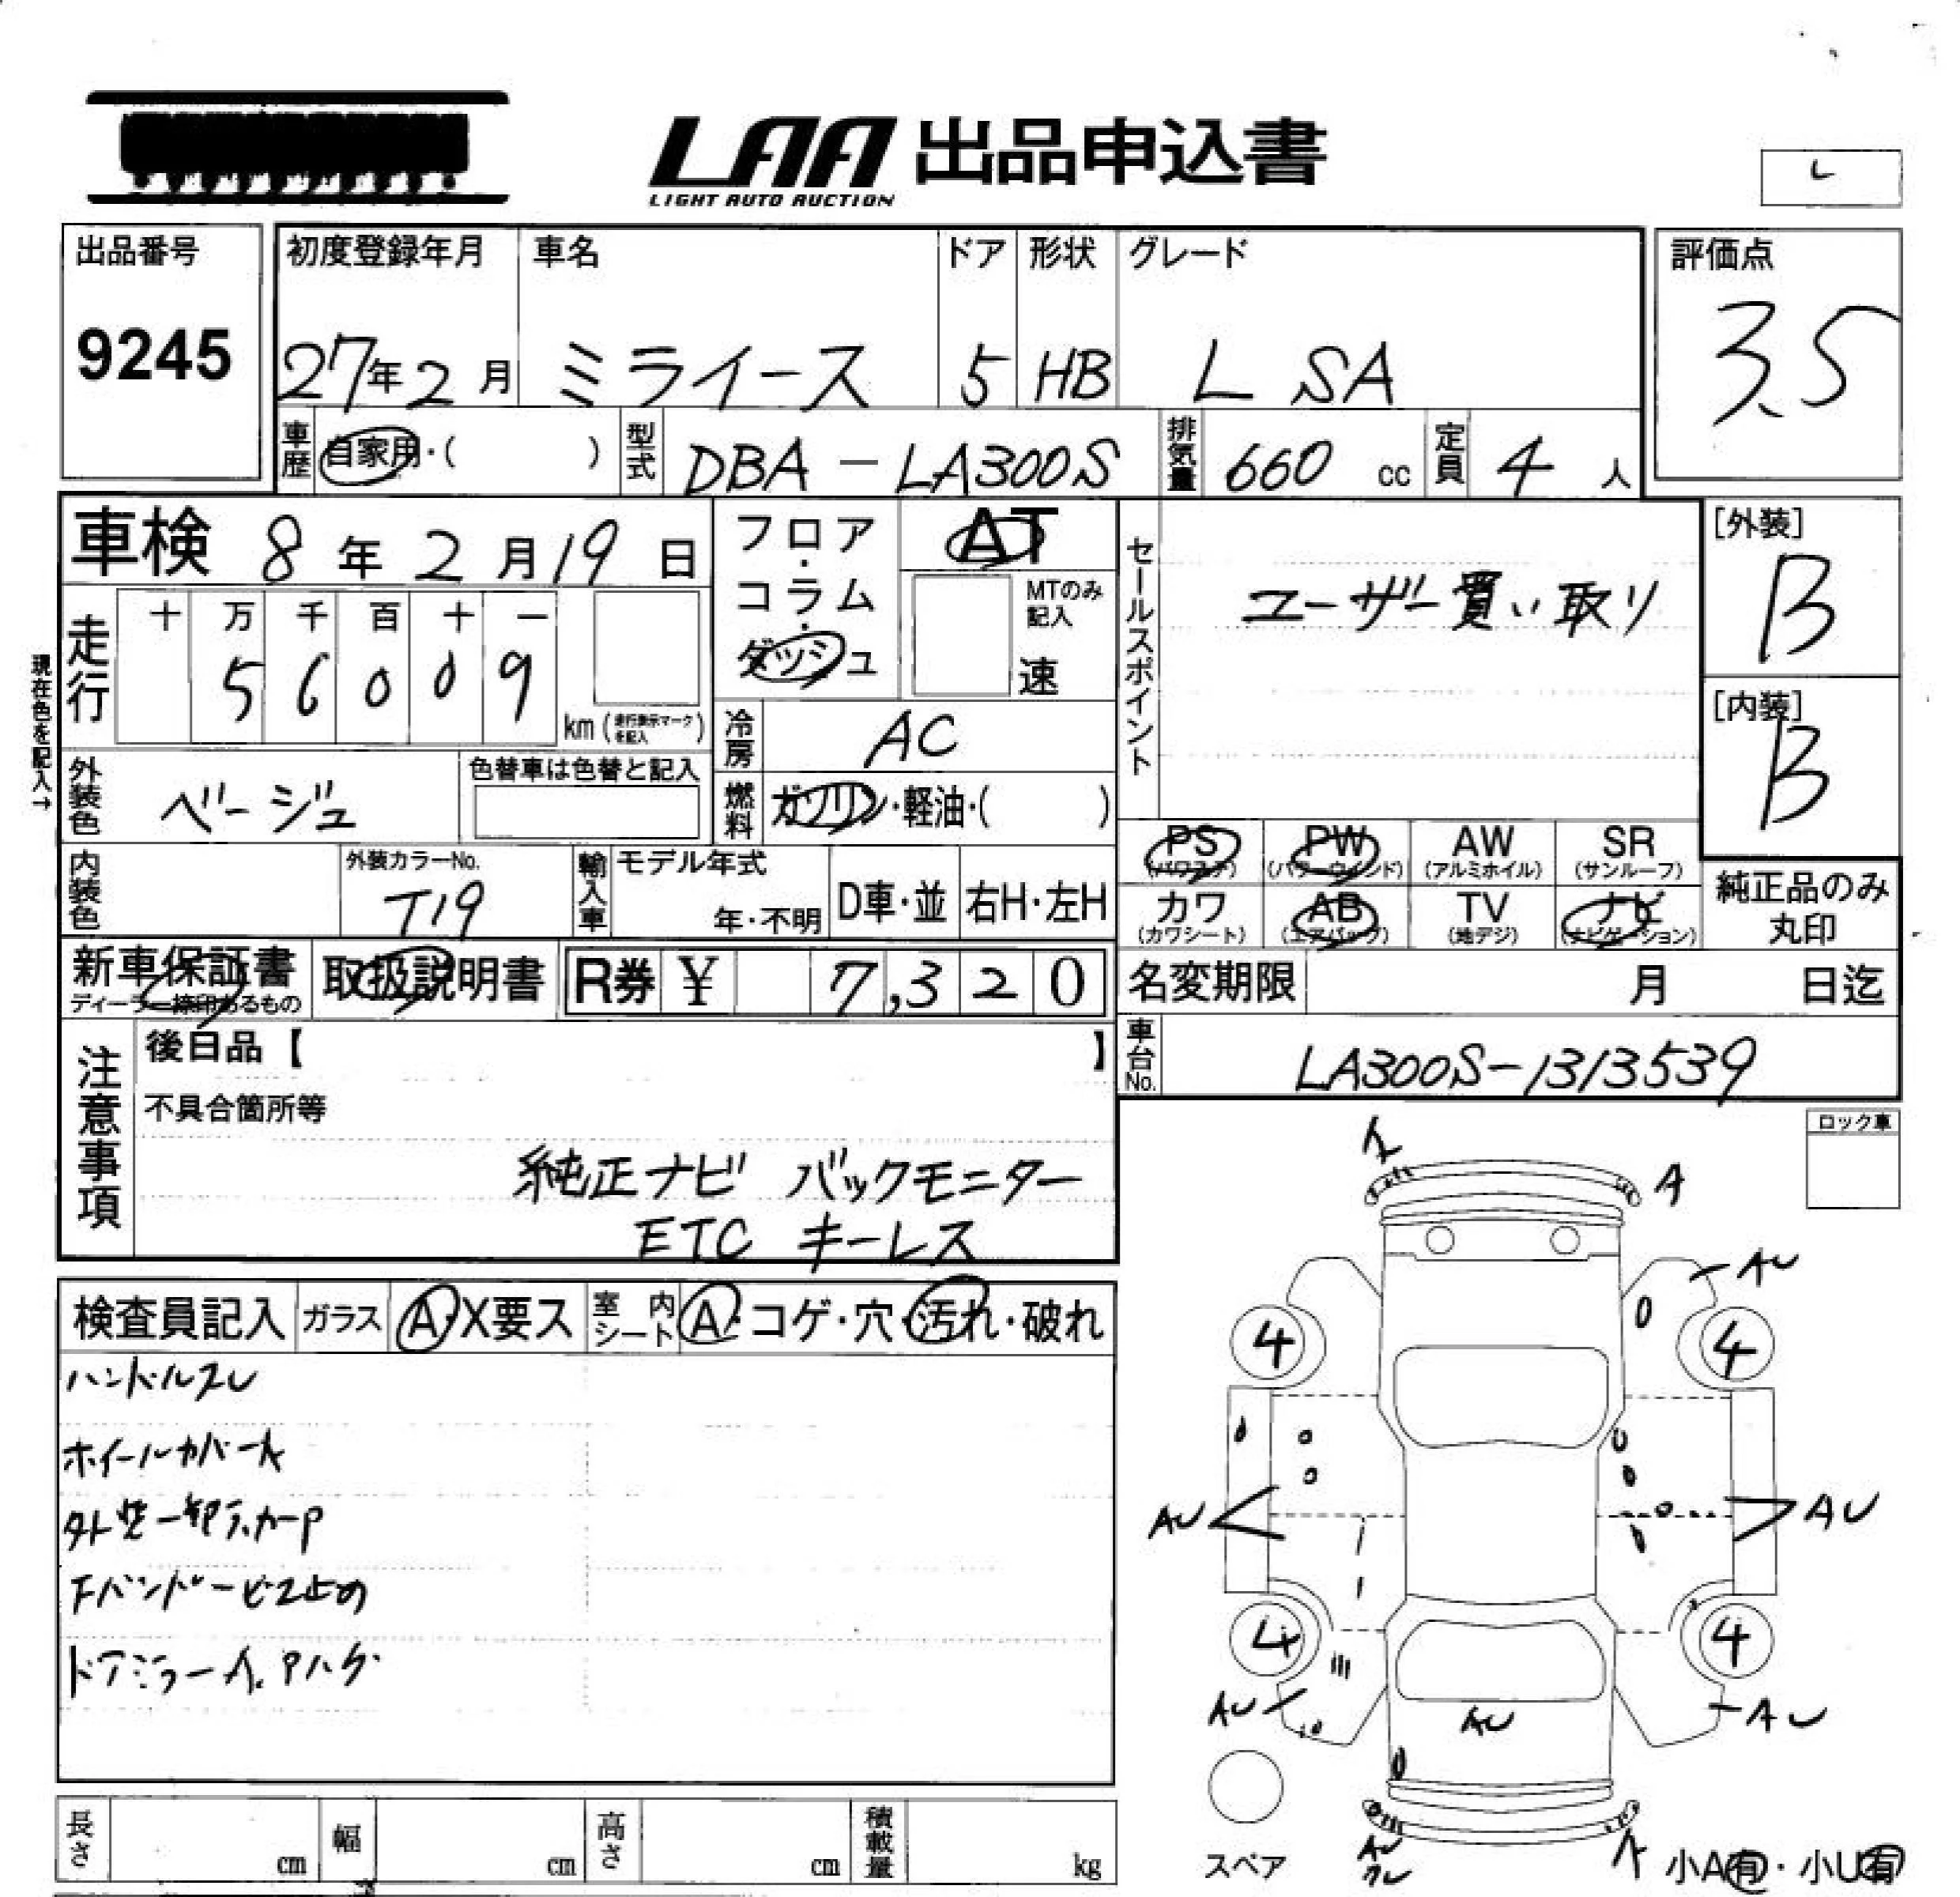 LAA 出品申込書
LIGHT AUTO AUCTION
L
出品番号
9245
初度登録年月 車名 ドア 形状 グレード
27年2月 ミライース 5 HB L SA
評価点
3.5
車歴 自家用・( ) 型式 DBA-LA300S 排気量 660 cc 定員 4 人
車検 8年2月19日
フロア・コラム・ダッシュ
AT
MTのみ記入
速
セールスポイント
ユーザー買い取り
[外装]
B
[内装]
B
現在色を記入→
走行 十 万 千 百 十 一
5 6 0 0 9
km (走行表示マークを記入)
冷房 AC
外装色 ベージュ
色替車は色替と記入
燃料 ガソリン・軽油・( )
PS (パワステ) PW (パワーウインド) AW (アルミホイル) SR (サンルーフ)
カワ (カワシート) AB (エアバッグ) TV (地デジ) ナビ (ナビゲーション)
純正品のみ
丸印
内装色 外装カラーNo. T19 輸入車 モデル年式 年・不明 D車・並 右H・左H
新車保証書 ディーラー捺印あるもの 取扱説明書 R券 ¥ 7,320
名変期限 月 日迄
注意事項
後日品【 】
車台No. LA300S-1313539
不具合箇所等
純正ナビ バックモニター
ETC キーレス
ロック車
検査員記入 ガラス A・X要ス 室内シート A・コゲ・穴・汚れ・破れ
ハンドルスレ
ホイールカバーA
外装一部
Fバンパービス止め
ドアミラーA.Pハゲ
A
AU
4 4
AU AU
4 4
AU AU AU
AU
スペア
小A有・小U有
長さ cm 幅 cm 高さ cm 積載量 kg